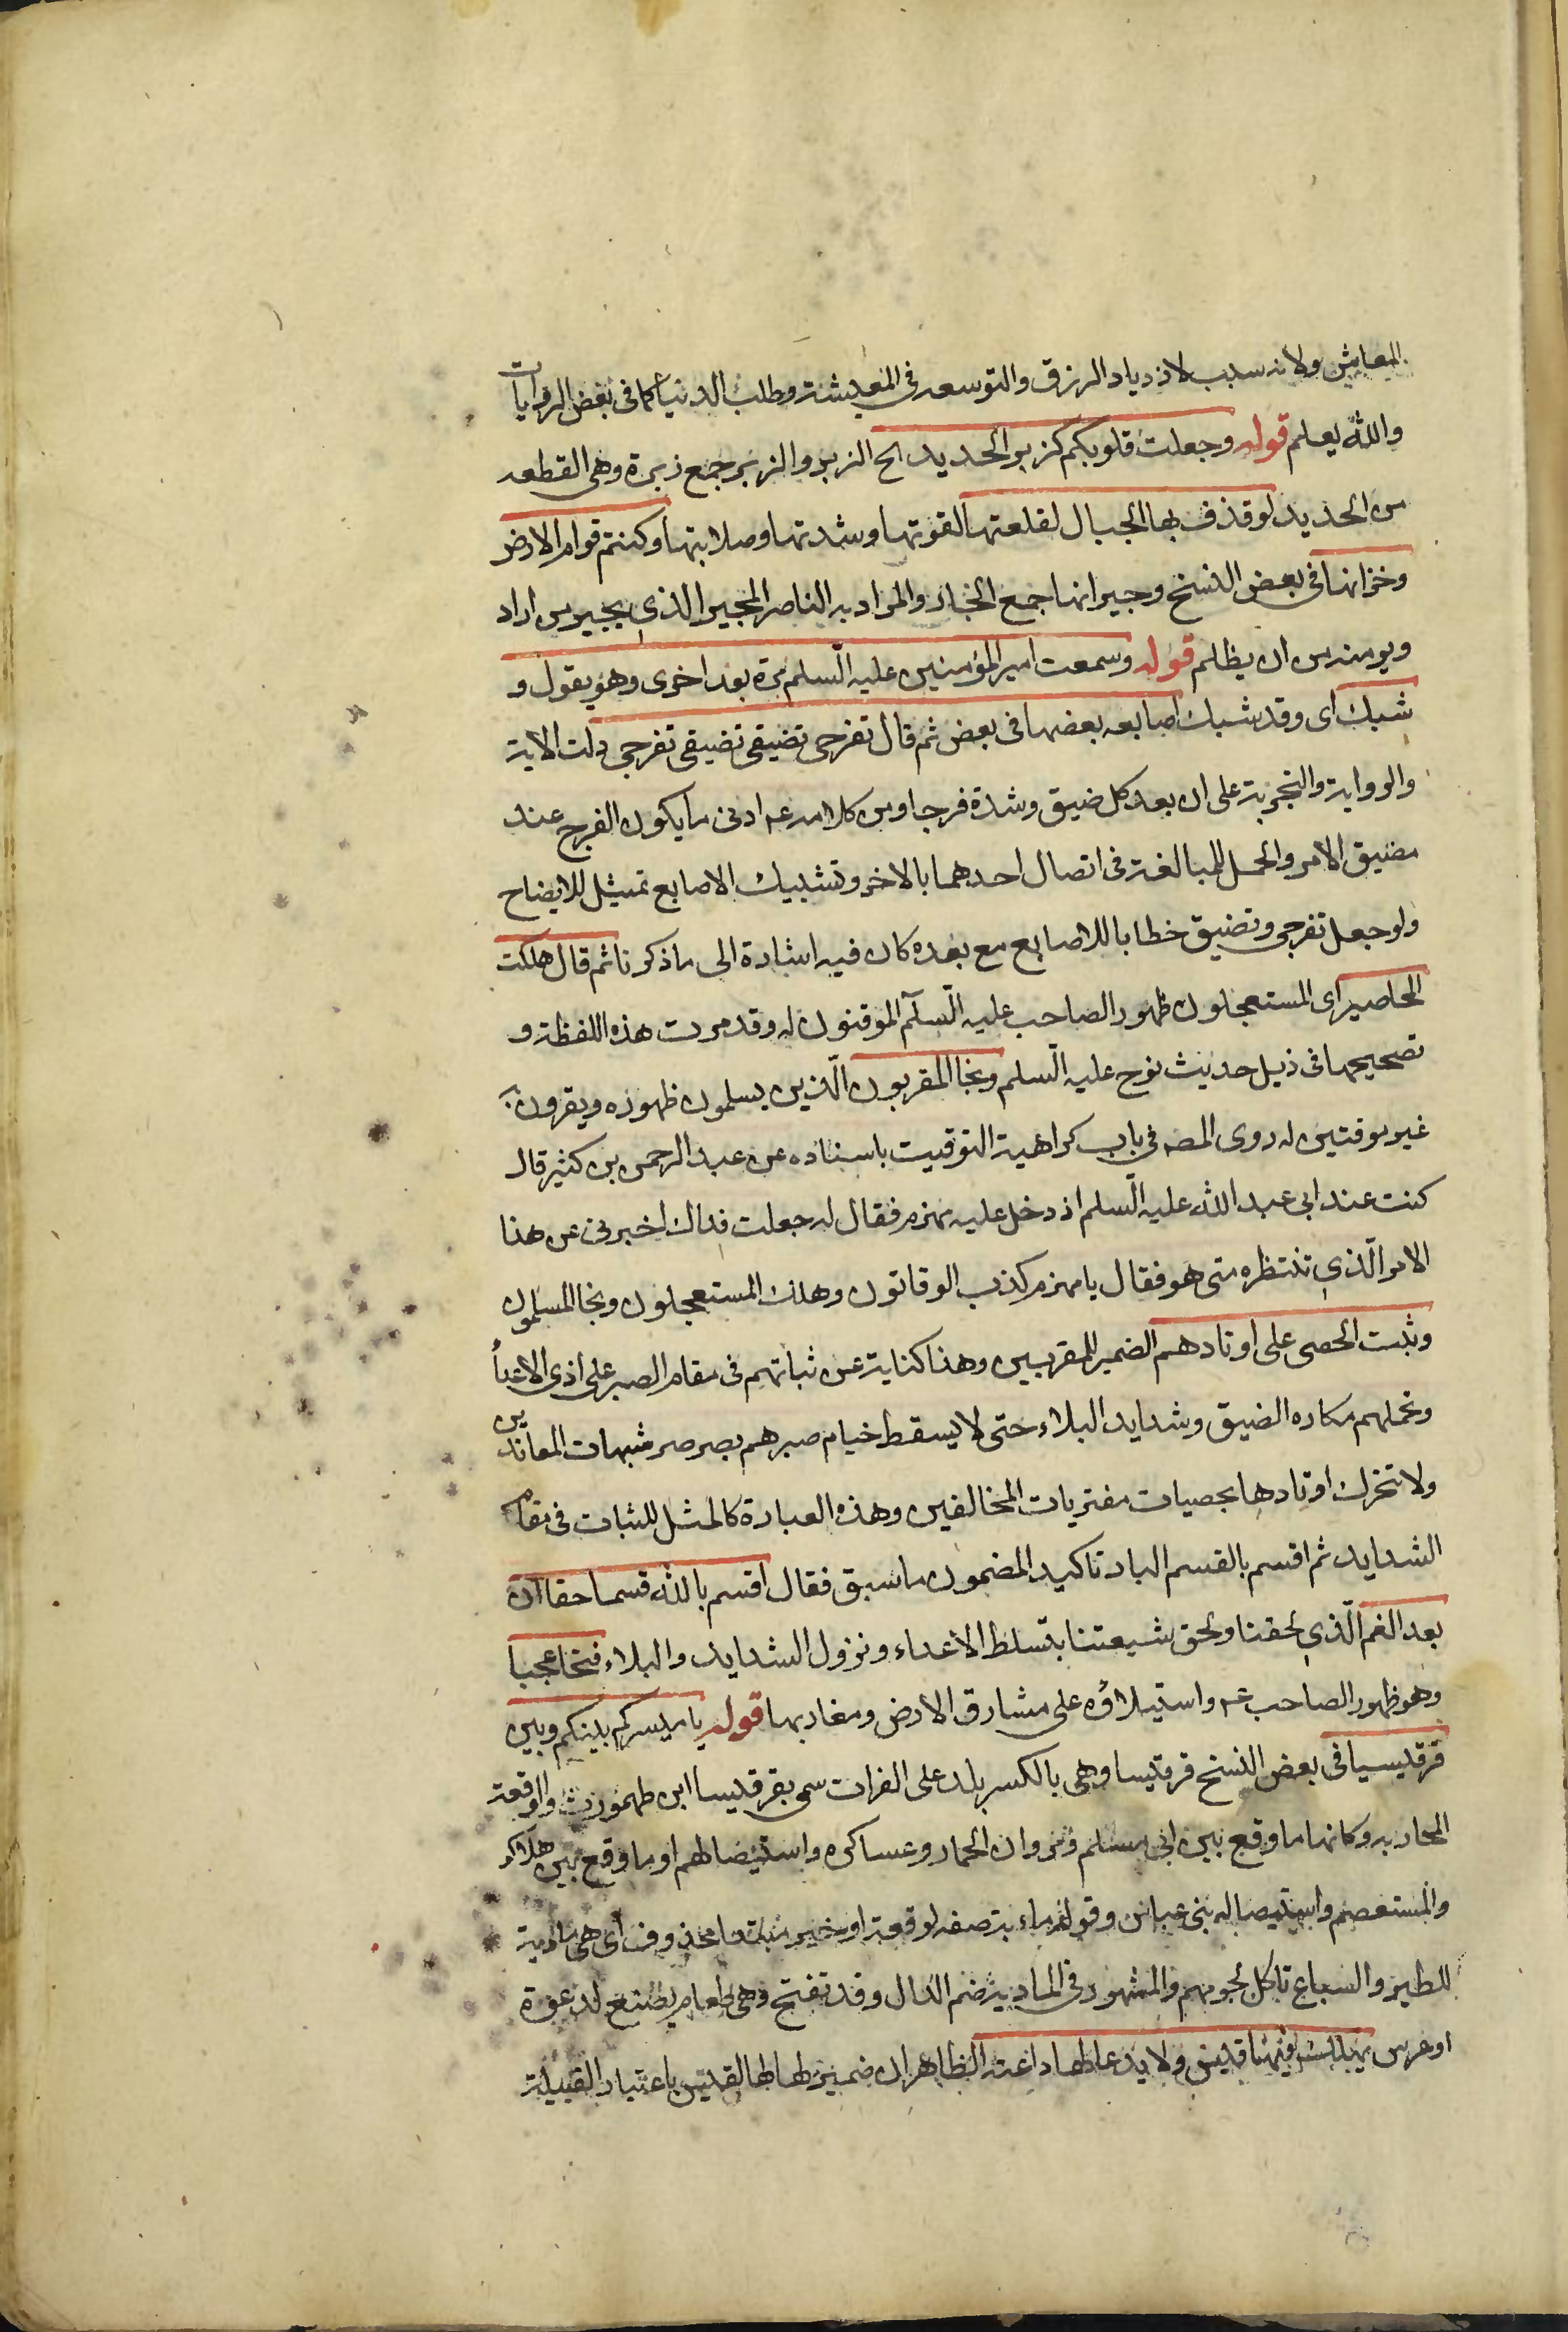 المعايش ولانه سبب لازدياد الرزق والتوسعه فى المعيشة وطلب الدنيا كما فى بعض الروايات
والله يعلم قوله وجعلت قلوبكم كزبر الحديد الخ الزبر والزبر جمع زبرة وهى القطعه
من الحديد لو قذف بها الجبال لقلعتها لقوتها وشدتها وصلابتها وكنتم قوام الارض
وخزانها فى بعض النسخ وجيرانها جمع الجار والمراد به الناصر المجير الذى يجير من اراد
ويومنه من ان يظلم قوله وسمعت امير المؤمنين عليه السلم مرة بعد اخرى وهو يقول و
شبك اى وقد شبك اصابعه بعضها فى بعض ثم قال تفرجى تضيقى تضيقى تفرجى دلت الاية
والرواية والتجربة على ان بعد كل ضيق وشدة فرجا ومن كلامه عم ادنى ما يكون الفرج عند
مضيق الامر والحمل للمبالغة فى اتصال احدهما بالاخر وتشبيك الاصابع تمثيل للايضاح
ولو جعل تفرجى وتضيق خطابا للاصابع مع بعده كان فيه اشارة الى ما ذكرنا ثم قال هلكت
المحاصير اى المستعجلون ظهور الصاحب عليه السلم الموقتون له وقد مرت هذه اللفظة و
تصحيحها فى ذيل حديث نوح عليه السلم ونجا المقربون الذين يسلمون ظهوره ويقرون به
غير موقتين له روى المصه فى باب كراهية التوقيت باسناده عن عبد الرحمن بن كثير قال
كنت عند ابى عبد الله عليه السلم اذ دخل عليه مهزم فقال له جعلت فداك اخبرنى عن هذا
الامر الذى تنتظره متى هو فقال يا مهزم كذب الوقاتون وهلك المستعجلون ونجا المسلمون
وثبت الحصى على اوتادهم الضمير للمقربين وهذا كناية عن ثباتهم فى مقام الصبر على اذى الاعدأ
وتحملهم مكاره الضيق وشدايد البلاء حتى لا يسقط خيام صبرهم بصرصر شبهات المعاندين
ولا تحرك اوتادها بحصيات مفتريات المخالفين وهذه العبارة كالمثل للثبات فى مقام
الشدايد ثم اقسم بالقسم البار تاكيد المضمون ما سبق فقال اقسم بالله قسما حقا ان
بعد الغم الذى لحقنا ولحق شيعتنا بتسلط الاعداء ونزول الشدايد والبلاء فتحا عجبا
وهو ظهور الصاحب عم واستيلاؤه على مشارق الارض ومغاربها قوله يا ميسر كم بينكم وبين
قرقيسيا فى بعض النسخ قرقيسا وهى بالكسر بلد على الفرات سمى بقرقيسا ابن طهمورث والوقعة
المحاربه وكانها ما وقع بين ابى مسلم ومروان الحمار وعساكره واستيضالهم او ما وقع بين هلاكو
والمستعصم واستيصاله بنى عباس وقوله مادبة صفه لوقعة او خبر مبتدا محذوف اى هى مادبة
للطير والسباع تاكل لحومهم والمشهور فى المادبة ضم الدال وقد تفتح وهى طعام يصنع لدعوة
او عرس يهلك فيها قيس ولا يدعا لها داعية الظاهر ان ضمير لها لقيس باعتبار القبيلة